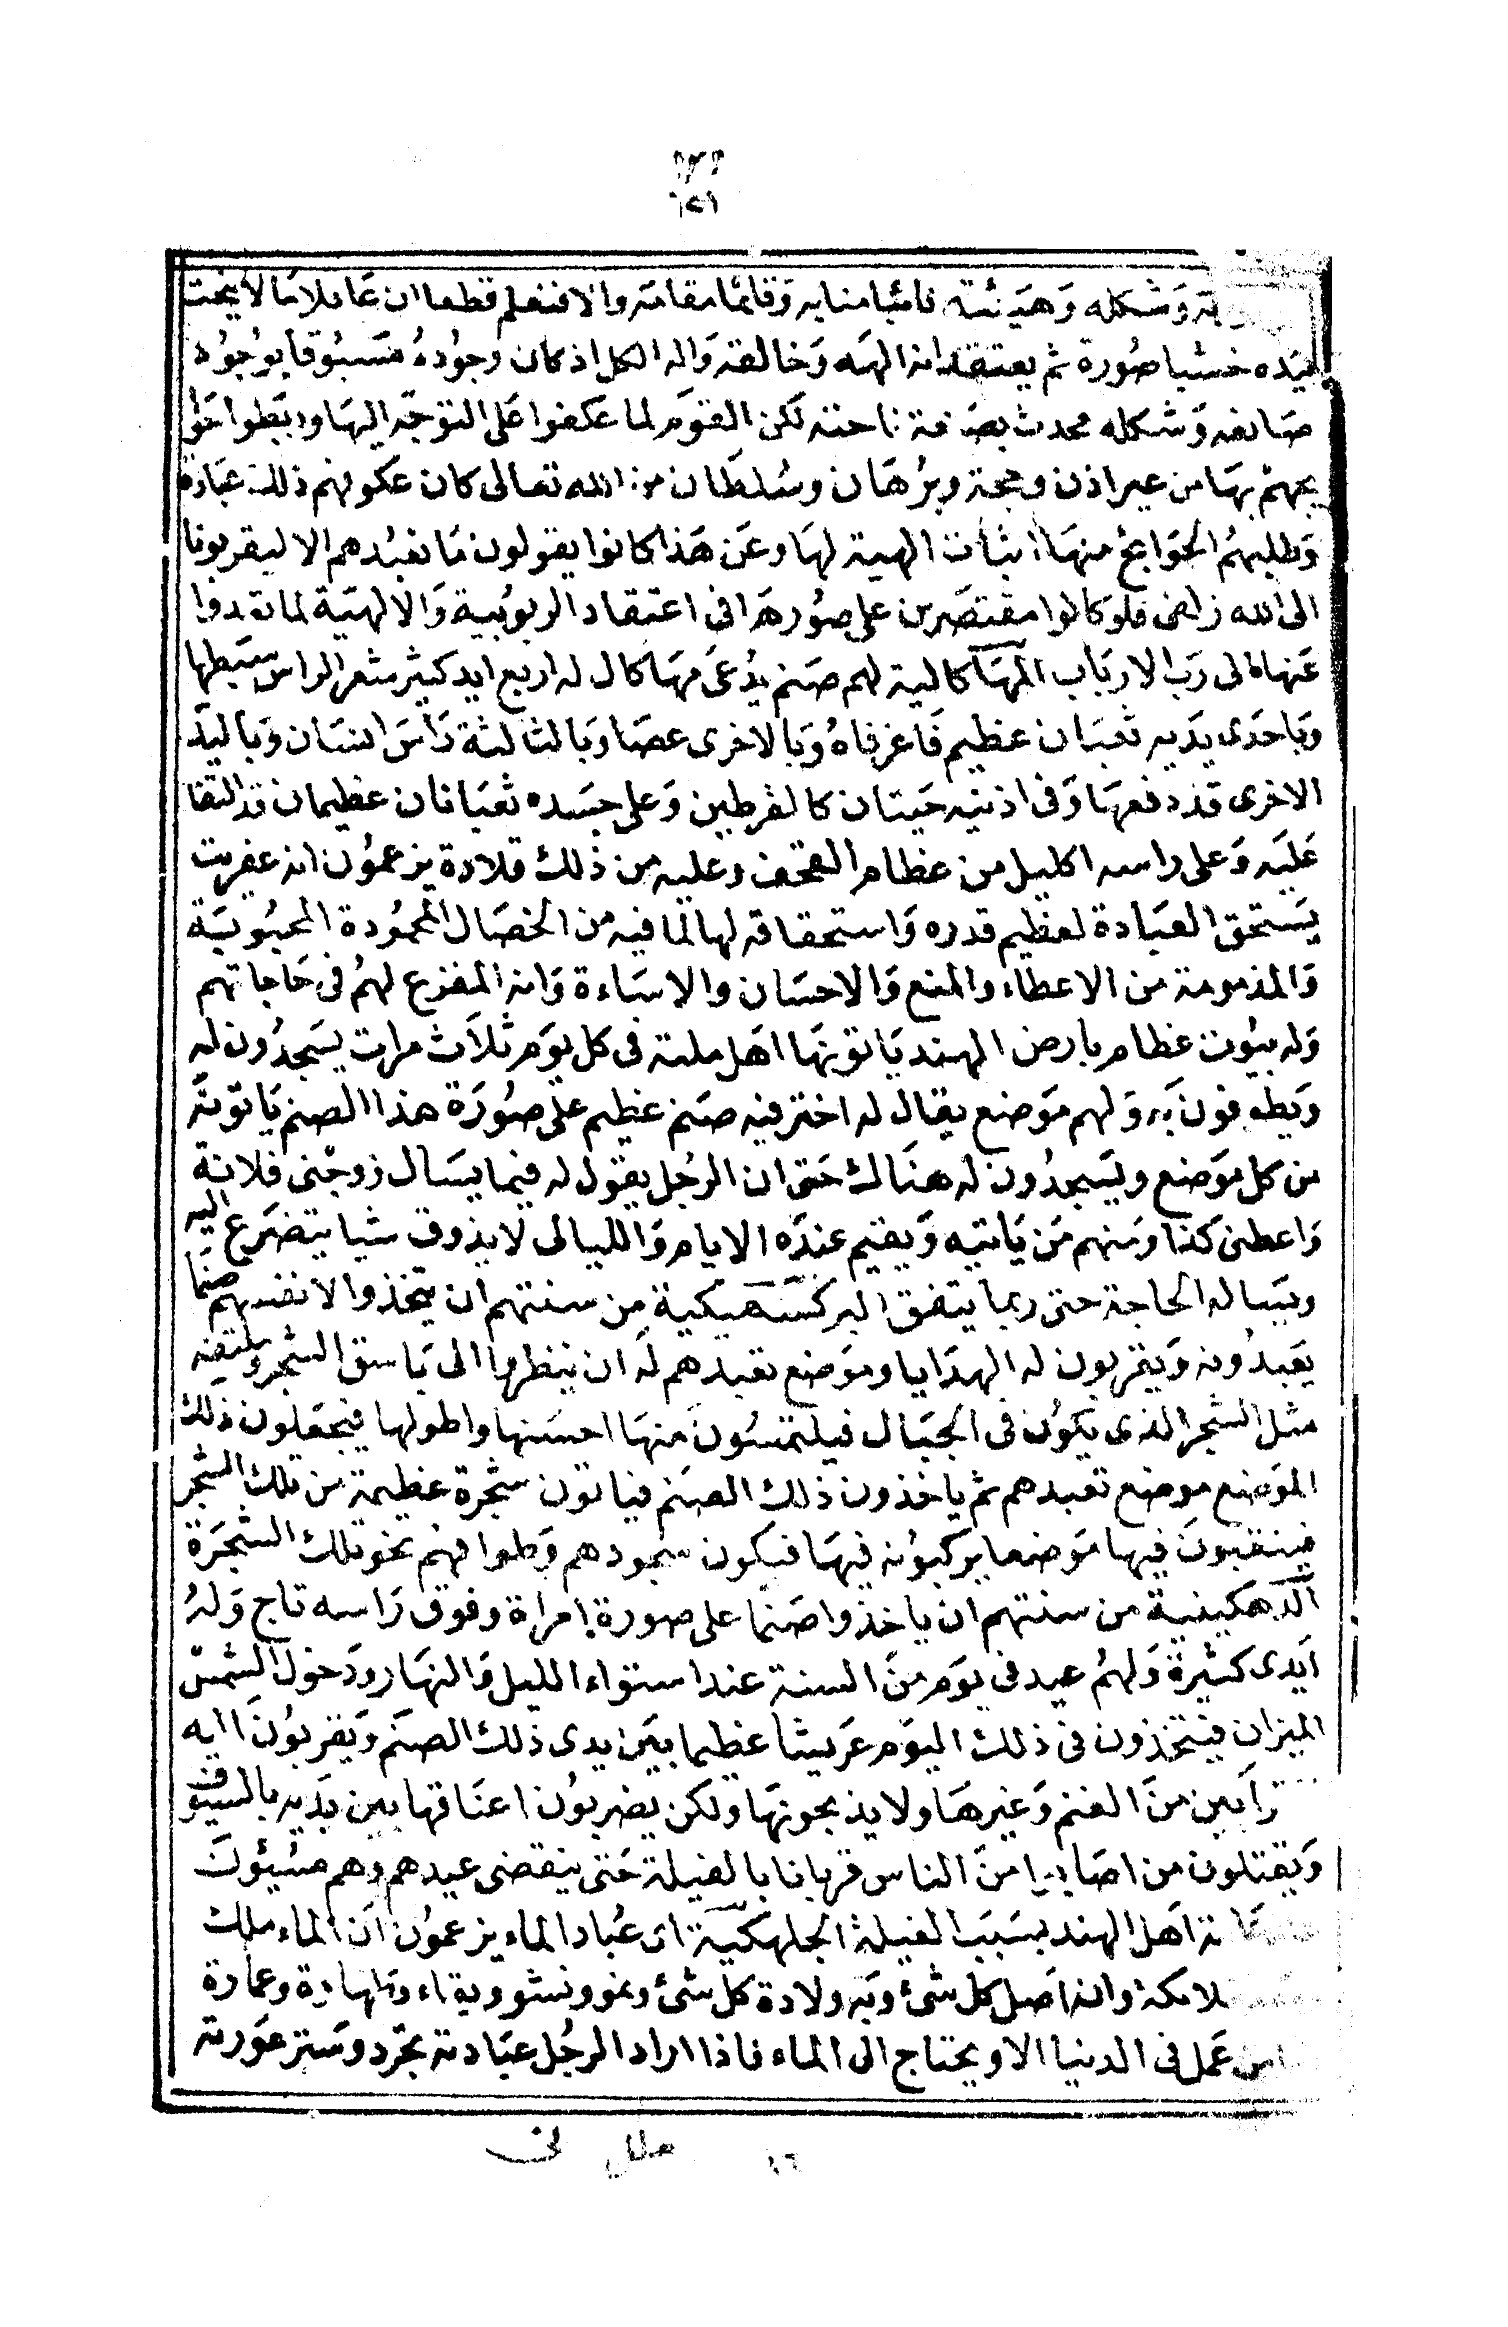 وشكله وهيئته نائبا منابه وقائما مقامه والا فنعلم قطعا ان عاقلا ما لا ينحت
بيده خشبا صورة ثم يعتقد انه الهه وخالقه واله الكل اذ كان وجوده مسبوقا بوجود
صانعه وشكله محدث بصنعة ناحته لكن القوم لما عكفوا على التوجه اليها وربطوا حوا
يجهم بها من غير اذن وحجة وبرهان وسلطان من الله تعالى كان عكوفهم ذلك عبادة
وطلبهم الحوائج منها اثبات الهية لها وعن هذا كانوا يقولون ما نعبدهم الا ليقربونا
الى الله زلفى فلو كانوا مقتصرين على صورها في اعتقاد الربوبية والالهية لما تعدوا
عنها الى رب الارباب المهاكالية لهم صنم يدعى مهاكال له اربع ايد كثير شعر الراس سبطها
وباحدى يديه ثعبان عظيم فاغر فاه وبالاخرى عصا وبالثالثة راس انسان وباليد
الاخرى قد دفعها وفي اذنيه حيتان كالقرطين وعلى جسده ثعبانان عظيمان قد التفا
عليه وعلى راسه اكليل من عظام القحف وعليه من ذلك قلادة يزعمون انه عفريت
يستحق العبادة لعظيم قدره واستحقاقه لها لما فيه من الخصال المحمودة المحبوبة
والمذمومة من الاعطاء والمنع والاحسان والاساءة وانه المفزع لهم في حاجاتهم
وله بيوت عظام بارض الهند ياتونها اهل ملته في كل يوم ثلاث مرات يسجدون له
ويطوفون به ولهم موضع يقال له اختر فيه صنم عظيم على صورة هذا الصنم ياتونه
من كل موضع ويسجدون له هناك حتى ان الرجل يقول له فيما يسال زوجنى فلانة
واعطنى كذا ومنهم من ياتيه ويقيم عنده الايام والليالى لا يذوق شيا يتضرع اليه
ويساله الحاجة حتى ربما يتفق البركسهيكية من سنتهم ان يتخذوا لانفسهم صنما
يعبدونه ويقربون له الهدايا وموضع تعبدهم له ان ينظروا الى باسق الشجر وملتفه
مثل الشجر الذى يكون في الجبال فيلتمسون منها احسنها واطولها فيجعلون ذلك
الموضع موضع تعبدهم ثم ياخذون ذلك الصنم فياتون شجرة عظيمة من تلك الشجر
فينقبون فيها موضعا يركبونه فيها فيكون سجودهم وطوافهم نحو تلك الشجرة
الدهكينية من سنتهم ان ياخذوا صنما على صورة امراة وفوق راسه تاج وله
ايدى كثيرة ولهم عيد في يوم من السنة عند استواء الليل والنهار ودخول الشمس
الميزان فيتخذون في ذلك اليوم عريشا عظيما بين يدى ذلك الصنم ويقربون اليه
القرابين من الغنم وغيرها ولا يذبحونها ولكن يضربون اعناقها بين يديه بالسيوف
ويقتلون من اصابوا من الناس قربانا بالغيلة حتى ينقضى عيدهم وهم مسيئون
اهل الهند بسبب الغيلة الجلهكية اى عباد الماء يزعمون ان الماء ملك
وانه اصل كل شئ وبه ولادة كل شئ ونمو ونشو وبقاء وطهارة وعمارة
من عمل في الدنيا الا ويحتاج الى الماء فاذا اراد الرجل عبادته تجرد وستر عورته